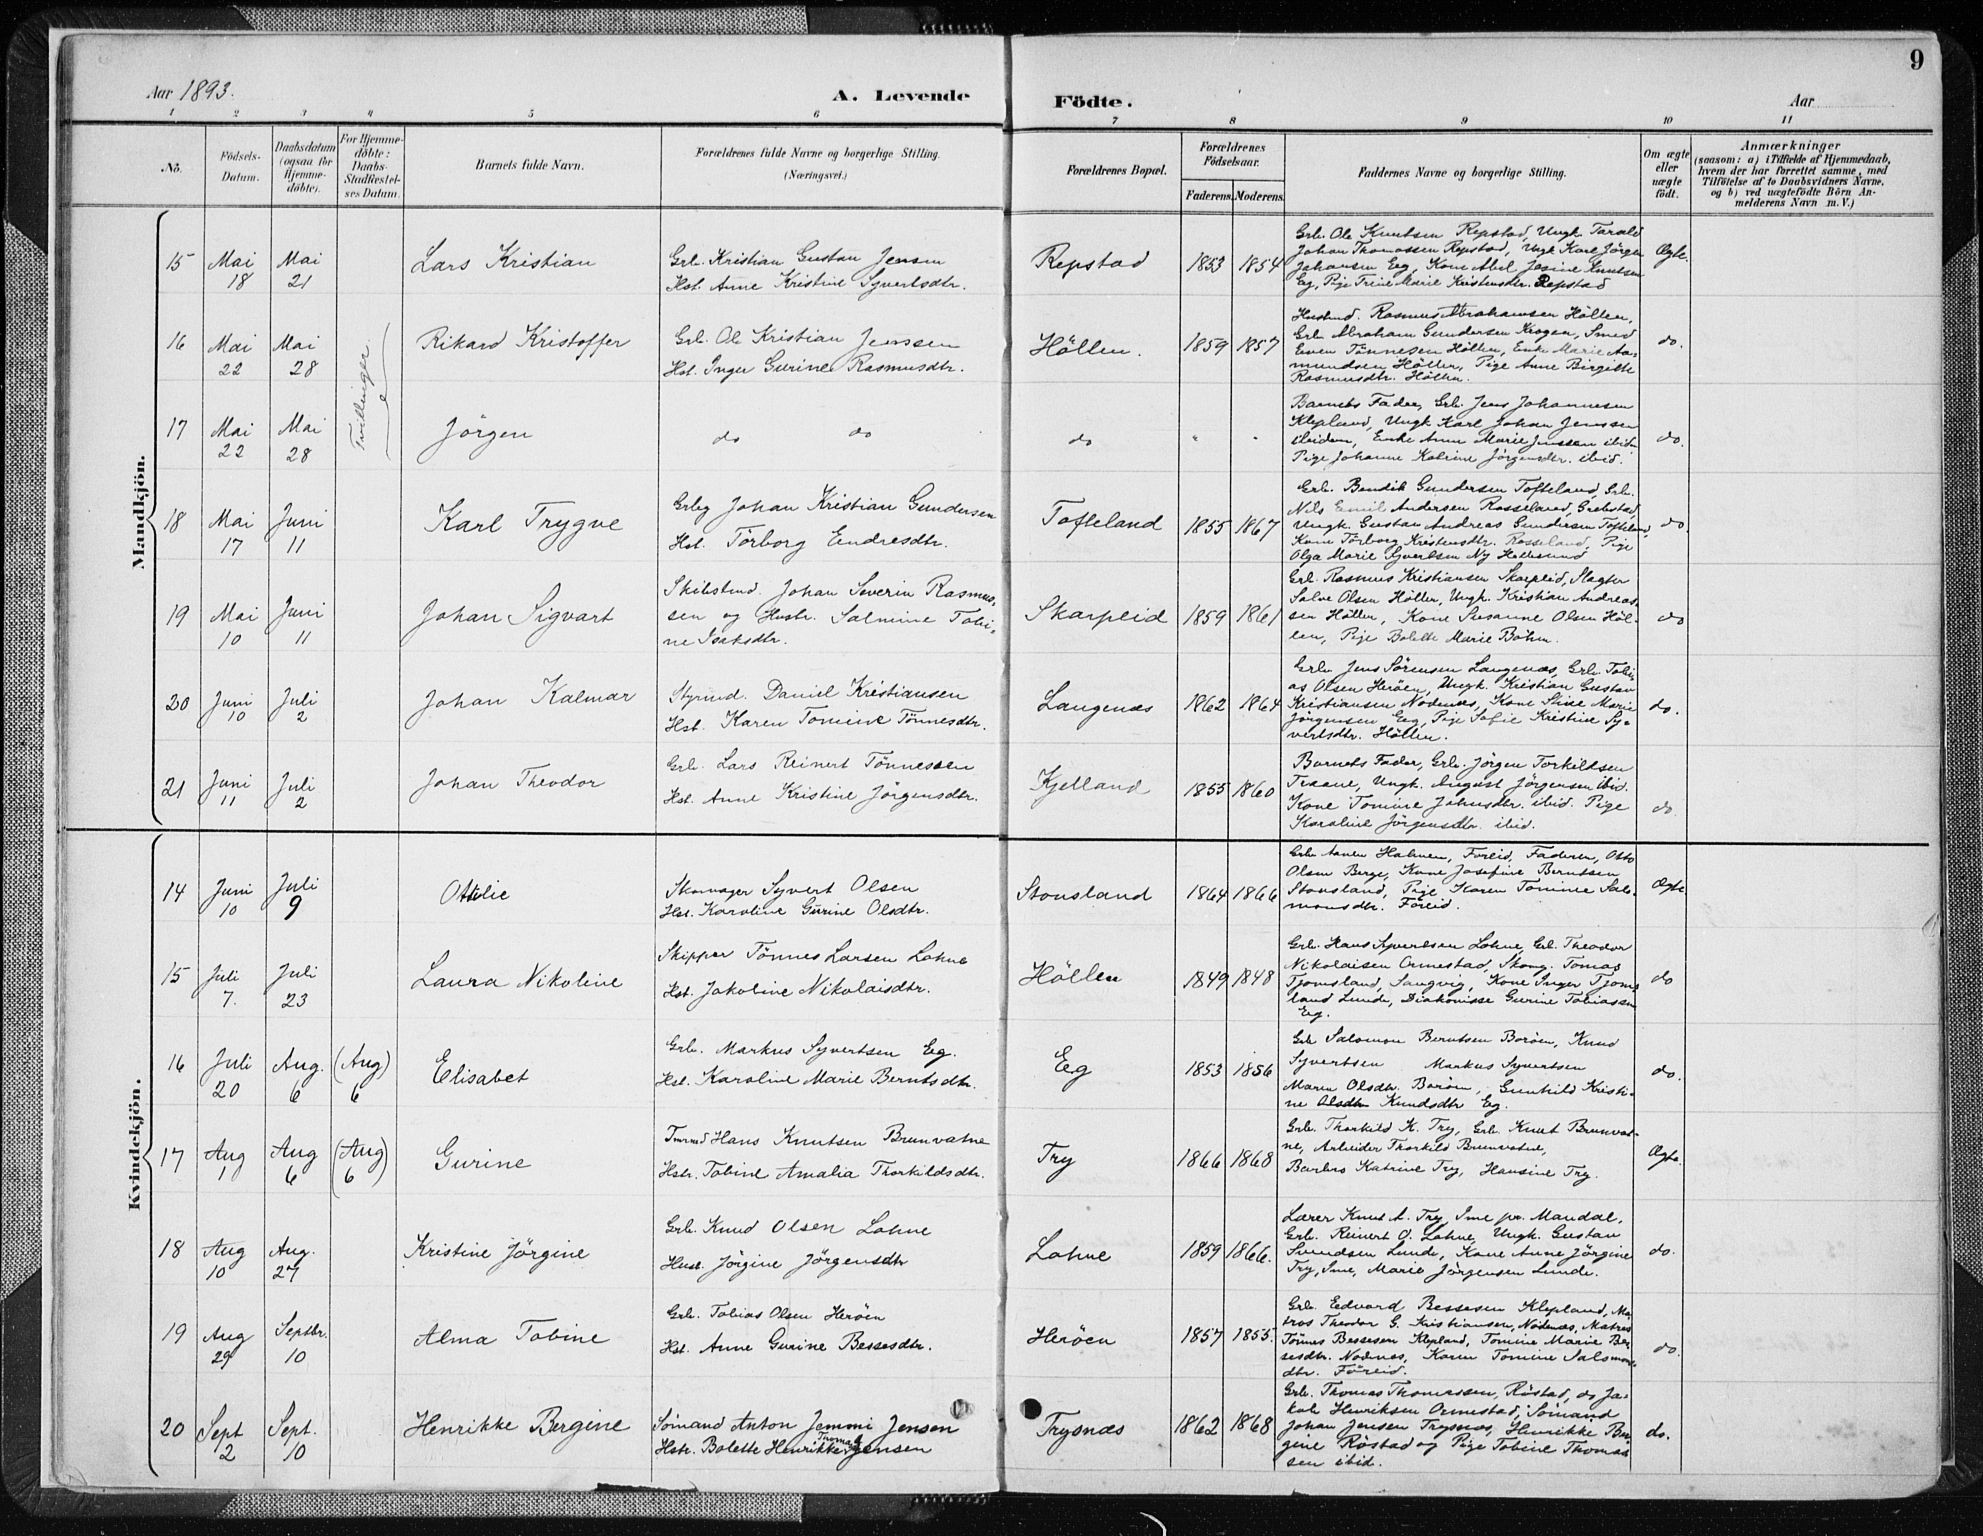 9
Aar 1893.
A. Levende
Födte.
Aar
1 2 3 4 5 6 7 8 9 10 11
No.
Födsels-
Datum.
Daabsdatum
(ogsaa for
Hjemme-
döbte).
For Hjemme-
döbte:
Daabs-
Stadfæstel-
ses Datum.
Barnets fulde Navn.
Forældrenes fulde Navne og borgerlige Stilling.
(Næringsvei.)
Forældrenes Bopæl.
Forældrenes
Födselsaar.
Faderens. Moderens.
Faddernes Navne og borgerlige Stilling.
Om ægte
eller
uægte
födt.
Anmærkninger
(saasom: a) i Tilfælde af Hjemmedaab,
hvem der har forrettet samme, med
Tilföielse af to Daabsvidners Navne,
og b) ved uægtefödte Börn An-
melderens Navn m. V.)
Mandkjön.
15
Mai
18
Mai
21
Lars Kristian
Grb. Kristian Gustav Jensen
Hst. Anne Kristine Syvertsdtr.
Repstad
1853 1854
Grb. Ole Knutsen Repstad, Ungk. Tarald
Johan Thomassen Repstad, Ungk Karl Jörgen
Johansen Eeg, Kone Abel Josine Knutsen
Eg, Pige Trine Marie Kristensdtr. Repstad
Ægte.
16
Mai
22
Mai
28
Tvillinger
Rikard Kristoffer
Grb. Ole Kristian Jenssen
Hst. Inger Gurine Rasmusdtr.
Höllen.
1859 1857
Husmd. Rasmus Abrahamsen Höllen,
Grb. Abraham Gundersen Krogen, Smed
Even Tönnesen Höllen, Enke Marie Aa-
mundsen Höllen, Pige Anne Birgitte
Rasmusdtr. Höllen.
do.
17
Mai
22
Mai
28
Jörgen
do do
do
" "
Barnets Fader, Grb. Jens Johannesen
Klepland, Ungk. Karl Johan Jenssen
ibidem, Enke Anne Marie Jenssen ibid.
Pige Johanne Katrine Jörgensdtr. ibid.
do.
18
Mai
17
Juni
11
Karl Trygve
Grbg Johan Kristian Gundersen
Hst. Törborg Endresdtr.
Tofteland
1855 1867
Grb. Bendik Gundersen Tofteland, Grb.
Nils Emil Andersen Rosseland, Grebstad,
Ungk. Gustav Andreas Gundersen Tofteland,
Kone Törborg Kristensdtr. Rosseland, Pige
Olga Marie Syvertsen Ny Hellesund
do
19
Mai
10
Juni
11
Johan Sigvart
Skibstmd. Johan Severin Rasmus-
sen og Hustr. Salmine Tobi-
ne Isaksdtr.
Skarpeid
1859 1861
Grb. Rasmus Kristiansen Skarpeid, Slagter
Salve Olsen Höllen, Ungk. Kristian Andreas-
sen Höllen, Kone Susanne Olsen Höl-
len, Pige Bolette Marie Böhm.
do
20
Juni
10
Juli
2
Johan Kalmar
Styrmd. Daniel Kristiansen
Hst. Karen Tomine Tönnesdtr.
Langenæs
1862 1864
Grb. Jens Sörensen Langenæs, Grb. Tobi-
as Olsen Heröen, Ungk. Kristian Gustav
Kristiansen Nodenæs, Kone Stine Marie
Jörgensen Eeg, Pige Sofie Kristine Sy-
vertsdtr. Höllen.
do.
21
Juni
11
Juli
2
Johan Theodor
Grb. Lars Reinert Tönnessen
Hst. Anne Kristine Jörgensdtr.
Kjelland
1855 1860
Barnets Fader, Grb. Jörgen Torkildsen
Traane, Ungk. August Jörgensen ibid.
Kone Tomine Johnsdtr. ibid. Pige
Karoline Jörgensdtr. ibid.
do
Kvindekjön.
14
Juni
10
Juli
9
Ottilie
Skomager Syvert Olsen
Hst. Karoline Gurine Olsdtr.
Stousland
1864 1866
Grb. Halmen, Föreid, Faderen, Otto
Olsen Berge, Kone Josefine Berntsen
Stousland, Pige Karen Tomine Salo-
monsdtr. Föreid.
Ægte
15
Juli
7.
Juli
23
Laura Nikoline
Skipper Tönnes Larsen Lohne
Hst. Jakoline Nikolaisdtr.
Höllen
1849 1848
Grb. Hans Syvertsen Lohne, Grb. Theodor
Nikolaisen Ormestad, Skomg. Tomas
Tjomsland, Langvig, Kone Inger Tjoms-
land Lunde, Diakonisse Gurine Tobiassen
Eg.
do
16
Juli
20
Aug.
6
(Aug)
6
Elisabet
Grb. Markus Syvertsen Eg.
Hst. Karoline Marie Berntsdtr.
Eg
1853 1856
Grb Salomon Berntsen Boröen, Knud
Syvertsen Markus Syvertsen
Maren Olsdtr. Boröen, Gunhild Kristi-
ne Olsdtr Knudsdtr Eg.
do.
17
Aug
1
Aug
6
(Aug)
6
Gurine
Tmrmd Hans Knutsen Brunvatne
Hstr. Tobine Amalia Thorkildsdtr.
Try
1866 1868
Grb. Thorkild K. Try, Grb. Knut Brunvat-
ne, Arbeider Thorkild Brunvatne,
Barbro Katrine Try, Hansine Try.
Ægte.
18
Aug
10
Aug.
27
Kristine Jörgine
Grb. Knud Olsen Lohne
Hust. Jörgine Jörgensdtr
Lohne
1859 1866.
Lærer Knut A. Try, Ime pr. Mandal,
Grb. Reinert O. Lohne, Ungk. Gustav
Svendsen Lunde, Kone Anne Jörgine
Try, Ime, Marie Jörgensen Lunde.
do.
19
Aug
29
Septbr.
10
Alma Tobine
Grb. Tobias Olsen Heröen
Hst. Anne Gurine Bessesdtr.
Heröen
1857 1855.
Grb. Edvard Bessesen Klepland, Ma-
tros Theodor G. Kristiansen, Nodenæs, Matros
Tönnes Bessesen Klepland, Tomine Marie Bes-
sesdtr. Nodenes, Karen Tomine Salomons-
dtr. Föreid.
do.
20
Sept
2
Sept.
10
Henrikke Bergine
Sömand Anton Jommi Jensen
Hstr. Bolette Henrikke Thomas Jensen
Trysnæs
1862 1868
Grb. Thomas Thomassen, Röstad, do Ja-
kob Henriksen Ormestad, Sömand
Johan Jensen Trysnæs, Henrikke Ber-
gine Röstad og Pige Tobine Thomas-
sen ibid.
do.